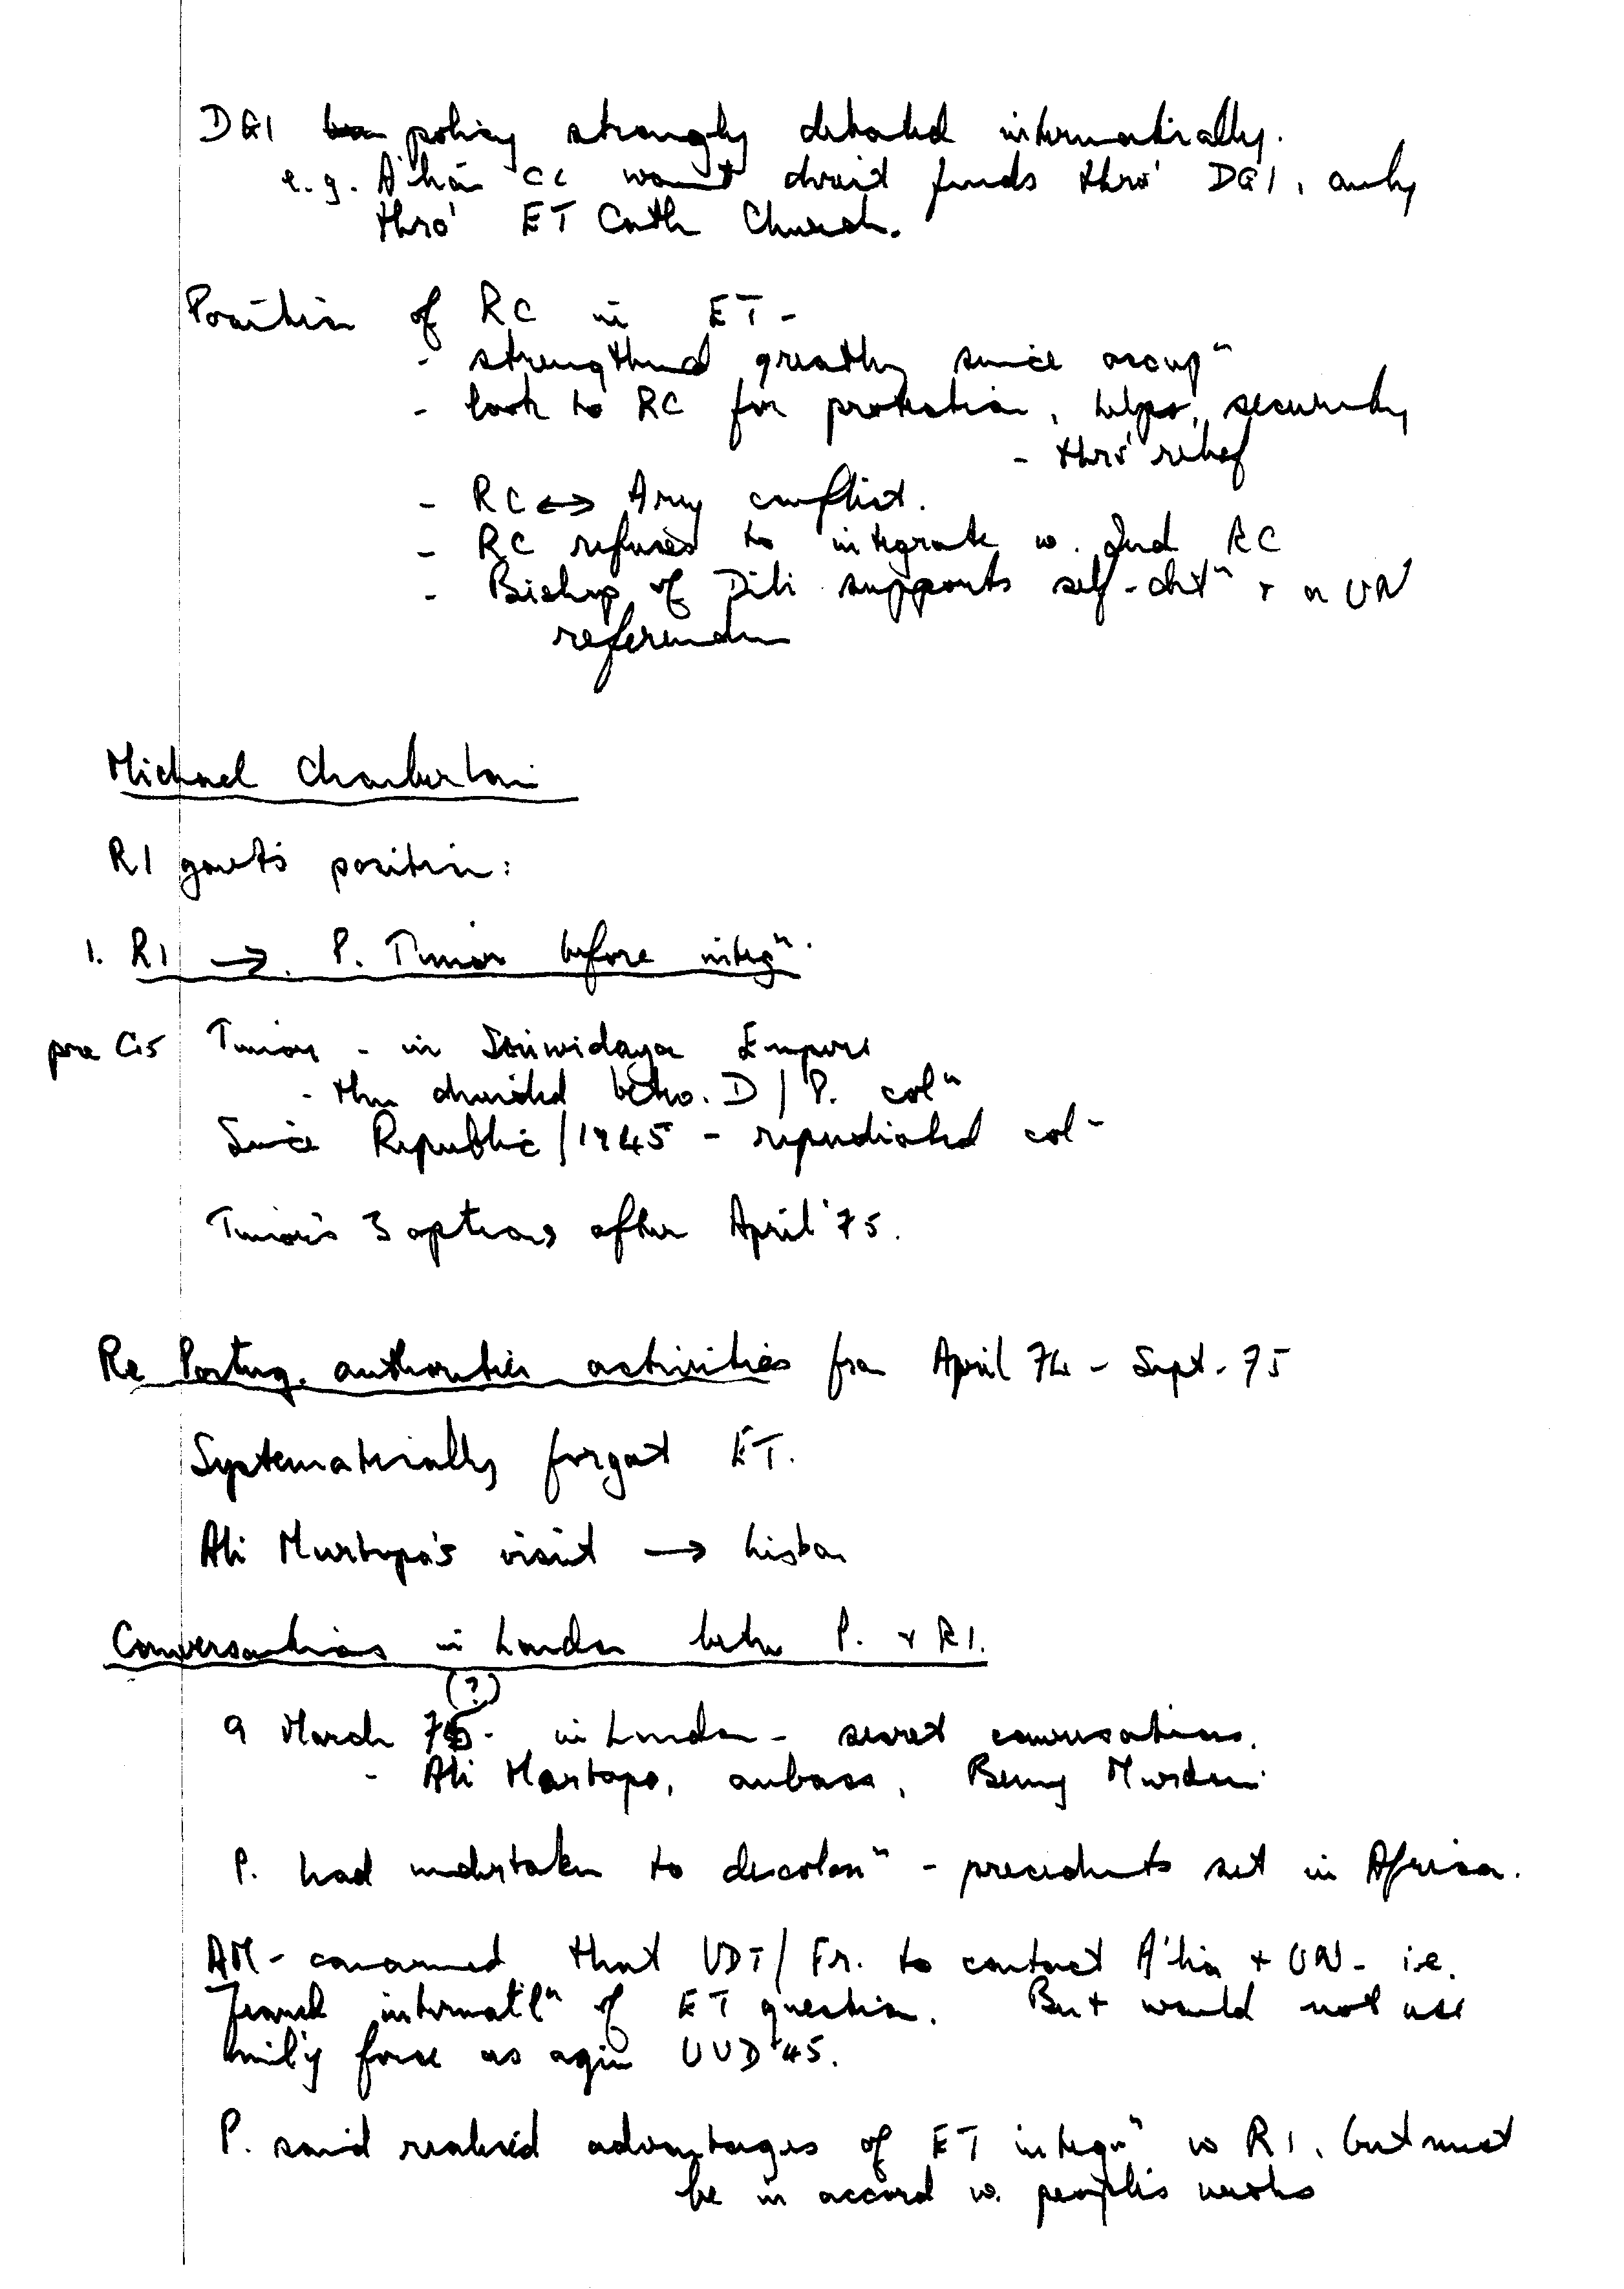 DGI policy strongly debated internationally.
e.g. A'lian CC won't direct funds thro' DGI, only
thro' ET Cath Church.
Position of RC in ET -
- strengthened greatly since occupⁿ
- look to RC for protection, helps, security
- thro' relief
- RC ↔ Army conflict.
- RC refuses to integrate w. Ind RC
- Bishop of Dili supports self-detⁿ + a UN
referendum
Michael Chamberlain
RI govt's position:
1. RI → P. Timor before integⁿ.
pre C15 Timor - in Sriwidaya Empire
- then divided betw. D / P. colⁿ
Since Republic / 1945 - repudiated colⁿ
Timor's 3 options after April '75.
Re Portug. authorities activities from April 74 - Sept. 75
Systematically forgot ET.
Ali Murtopo's visit → Lisbon
Conversations in London betw P. + RI.
(?)
9 March 75 - in London - secret conversations.
- Ali Murtopo, ambass, Benny Murdani
P. had undertaken to decolonⁿ - precedents set in Africa.
AM - concerned that UDT / Fr. to contact A'lia + UN - i.e.
feared internat'lⁿ of ET question. But would not use
mil'y force as agin UUD '45.
P. said realised advantages of ET integrⁿ w RI, but must
be in accord w. people's wishes